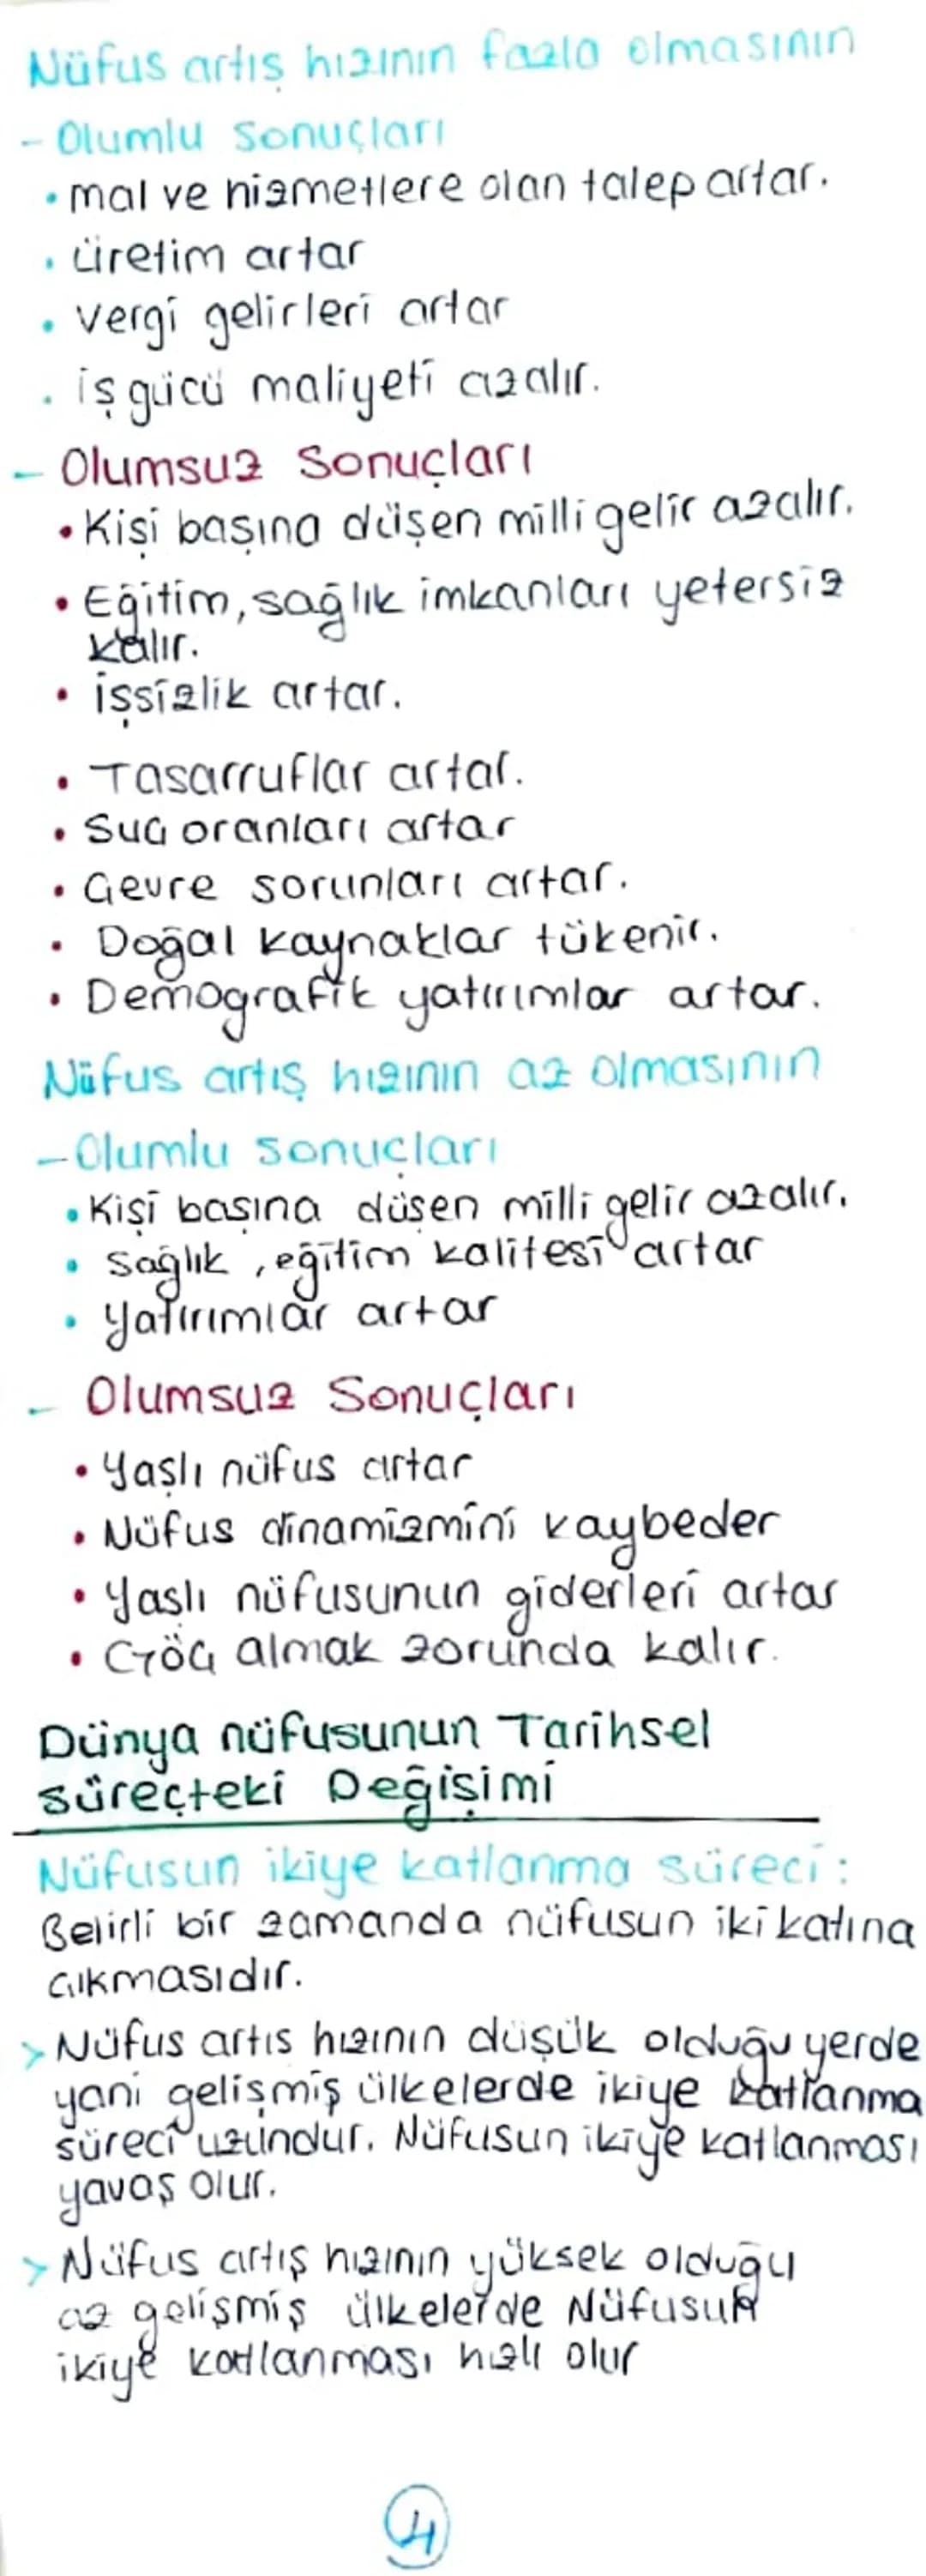 Nüfus artış hızının fazla olmasının
- Olumlu Sonuçları
• mal ve hizmetlere olan talep artar.
• üretim artar
• vergi gelirleri artar
• iş gücü maliyeti azalır.
- Olumsuz Sonuçları
• Kişi başına düşen milli gelir azalır.
• Eğitim, sağlık imkanları yetersiz
kalır.
• işsizlik artar.
• Tasarruflar artar.
• Suç oranları artar
• Çevre sorunları artar.
• Doğal kaynaklar tükenir.
• Demografik yatırımlar artar.
Nüfus artış hızının az olmasının
- Olumlu sonuçları
• Kişi başına düşen milli gelir azalır.
• Sağlık, eğitim kalitesi artar
• yatırımlar artar
- Olumsuz Sonuçları
• Yaşlı nüfus artar
• Nüfus dinamizmini kaybeder
• Yaşlı nüfusunun giderleri artar
• Göç almak zorunda kalır.
Dünya nüfusunun Tarihsel
süreçteki Değişimi
Nüfusun ikiye katlanma süreci:
Belirli bir zamanda nüfusun iki katına
çıkmasıdır.
> Nüfus artış hızının düşük olduğu yerde
yani gelişmiş ülkelerde ikiye katlanma
süreci uzundur. Nüfusun ikiye katlanması
yavaş olur.
> Nüfus artış hızının yüksek olduğu
az gelişmiş ülkelerde Nüfusun
ikiye katlanması hızlı olur
4